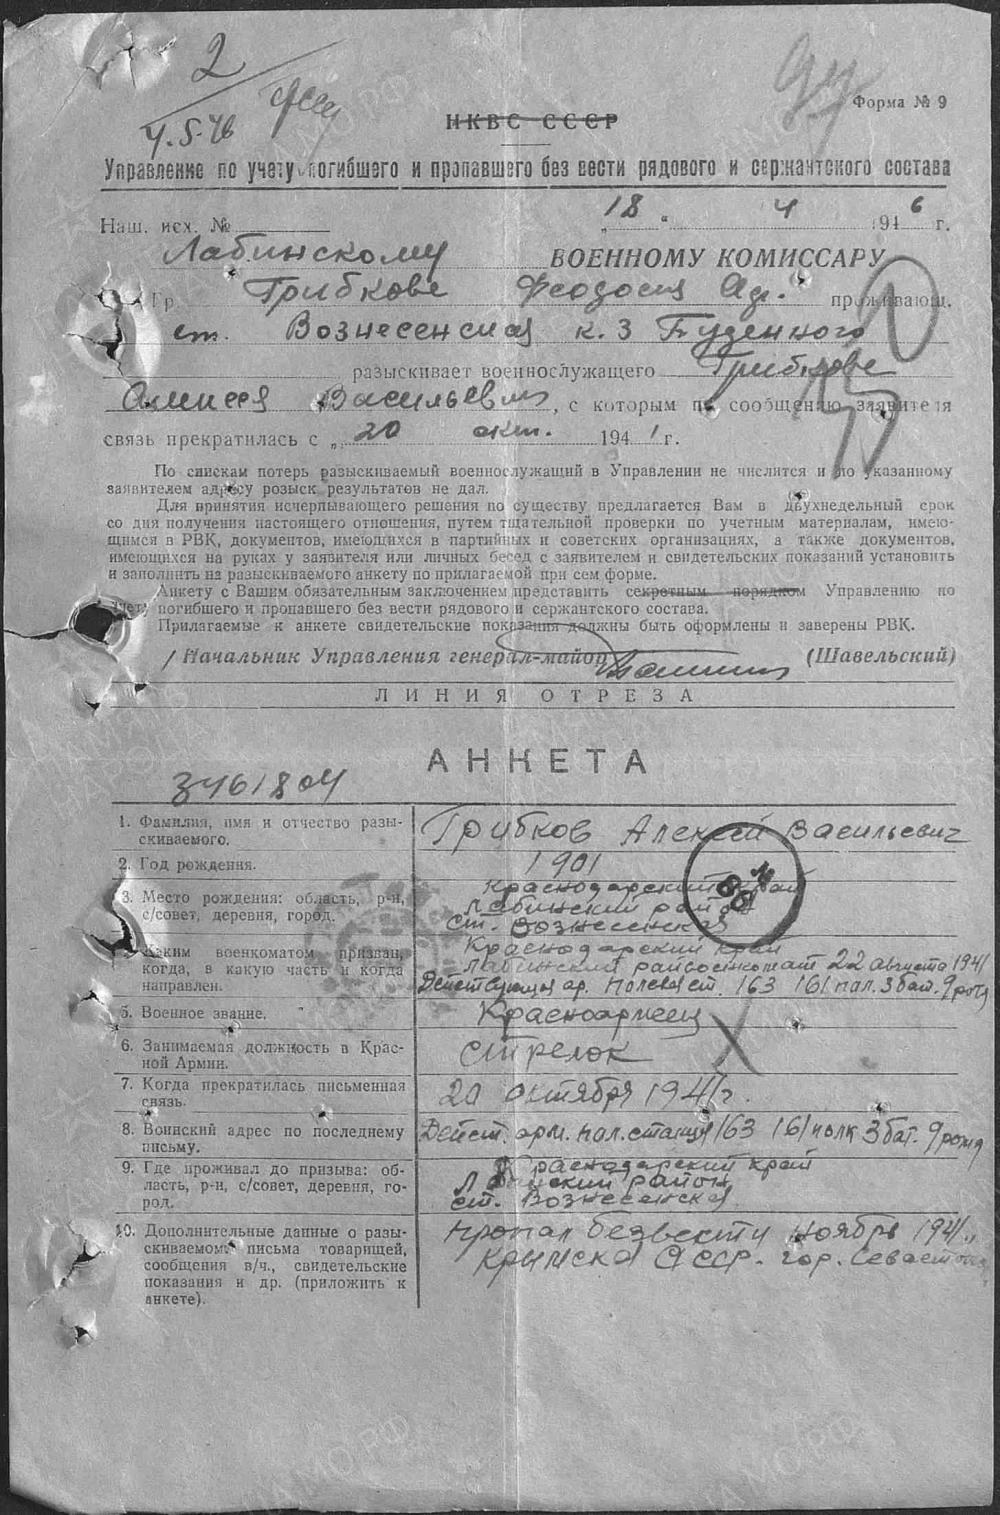 2
4.5.46
Форма № 9
НКВС СССР
Управление по учету погибшего и пропавшего без вести рядового и сержантского состава
Наш. исх. №
„18“ 4 1946 г.
Лабинскому ВОЕННОМУ КОМИССАРУ
Гр. Грибкове Феодосия Ад. проживающ.
ст. Вознесенская к. 3 Буденного
разыскивает военнослужащего Грибкове
Алексея Васильевич, с которым по сообщению заявителя
связь прекратилась с „20 окт. 1941 г.
По спискам потерь разыскиваемый военнослужащий в Управлении не числится и по указанному
заявителем адресу розыск результатов не дал.
Для принятия исчерпывающего решения по существу предлагается Вам в двухнедельный срок
со дня получения настоящего отношения, путем тщательной проверки по учетным материалам, имею-
щимся в РВК, документов, имеющихся в партийных и советских организациях, а также документов,
имеющихся на руках у заявителя или личных бесед с заявителем и свидетельских показаний установить
и заполнить на разыскиваемого анкету по прилагаемой при сем форме.
Анкету с Вашим обязательным заключением представить секретным порядком Управлению по
учету погибшего и пропавшего без вести рядового и сержантского состава.
Прилагаемые к анкете свидетельские показания должны быть оформлены и заверены РВК.
Начальник Управления генерал-майор (Шавельский)
ЛИНИЯ ОТРЕЗА
АНКЕТА
3461804
1. Фамилия, имя и отчество разы-
скиваемого.
Грибков Алексей Васильевич
2. Год рождения.
1901
3. Место рождения: область, р-н,
с/совет, деревня, город.
Краснодарский край
Лабинский район
ст. Вознесенская
Каким военкоматом призван,
когда, в какую часть и когда
направлен.
Краснодарский край
Лабинский райвоенкомат 22 августа 1941
Действующая ар. полевая ст. 163 161 пол. 3 бат. 9 рота
5. Военное звание.
Красноармеец
6. Занимаемая должность в Крас-
ной Армии.
стрелок
7. Когда прекратилась письменная
связь.
20 октября 1941 г.
8. Воинский адрес по последнему
письму.
Дейст. арм. пол. станция 163 161 полк 3 бат. 9 рота
9. Где проживал до призыва: об-
ласть, р-н, с/совет, деревня, го-
род.
Краснодарский край
Лабинский район
ст. Вознесенская
10. Дополнительные данные о разы-
скиваемом: письма товарищей,
сообщения в/ч., свидетельские
показания и др. (приложить к
анкете).
пропал безвести ноябрь 1941
Крымская АССР. гор. Севастополь